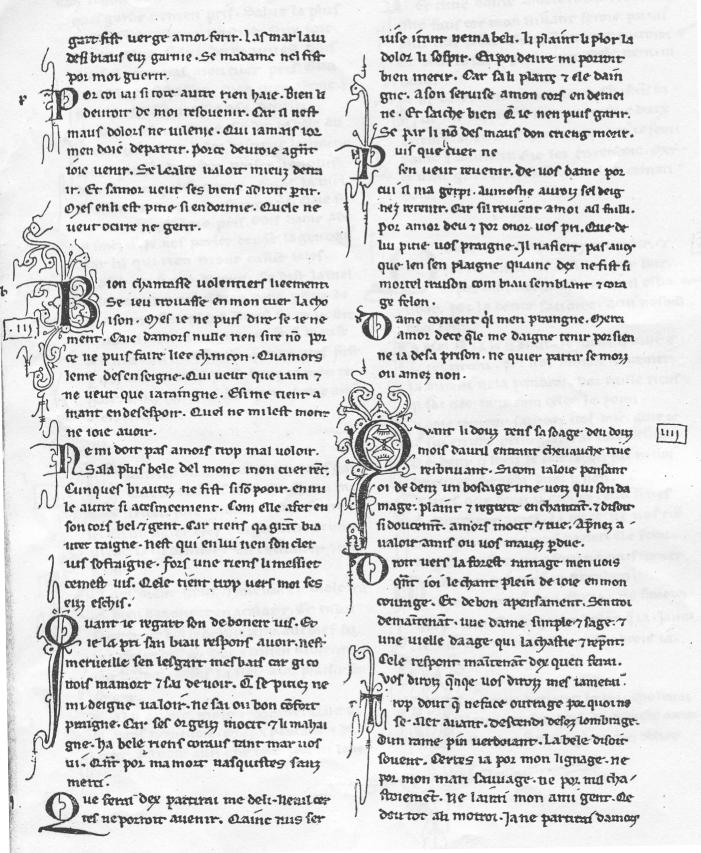 gart fist verge amor ferir. Las mar la ui
de si biaus euz garnie. Se ma dame nel fist
por moi guerir.
Por coi iai si tote autre rien haie. Bien la
deuroit de moi resouenir. Car il nest
maus dolors ne uilenie. Qui iamais ior
men doie departir. Por ce deuroie
ioie uenir. Se lealte ualoit mieuz de tra
ir. Et samor ueut ses biens a droit ꝑtir.
Mes en li est pitie si endormie. Quele ne
ueut ocirre ne gerir.
Bion chantasse volentiers lieement
Se ieu trouasse en mon cuer lacho
ison. Mes ie ne puis dire se ie ne
iii
ment. Caie damors nulle rien sire nō por
ce ne puis faire liee chancon. Quamors
le me desenseigne. Qui ueut que iaim ⁊
ne ueut que iataingne. Ensi me tient a
mant en desespoir. Quel ne mi lest morir
ne ioie auoir.
Ne mi doit pas amors trop mal voloir.
Sa la plus bele del mont mon cuer
Cunques biautez ne fist si sō pooir. en nu
le autre si acesmeement. Com elle a fet en
son cors bel ⁊ gent. Car riens
uter taigne. nest qui en lui nen son cler
uis soffraigne. fors une riens li messiet
ce mest uis. Qele tient trop vers moi ses
euz eschis.
Quant ie regart son de bonere uis. Et
ie la pri san biau respons auoir. nest
merueille sen lesgart mesbais car gi co
nois ma mort ⁊ sai de uoir. se pitiez ne
mi deigne ualoir. ne sai ou bon cōfort
praigne. Car ses orgeuz mocit ⁊ li mahai
gne. ha bele riens coraus tant mar uos
ui. por ma mort nasquistes sanz
merci.
Que ferai dex partirai me de li. Nenil cer
tes ne porroit auenir. Qainc nus ser
uise itant nem abeli. li plaint li plor la
dolor li sospir. En poi deure mi porroit
bien merir. Car sa li plaist ⁊ ele dain
gne. a son seruise a mon cors en demei
ne. Et sache bien Q̄ ie nen puis garir.
Se par li nō des maus don crieng morir.
Puis que cuer ne
sen ueut reuenir. de uos dame por
cui il ma gerpi. Aumosne auroiz sel deig
niez retenir. Car sil reuient a moi
Por amor deu ⁊ por onor uos pri. Que de
lui pitie uos praigne. Il nafiert pas
que len sen plaigne quainc dex ne fist si
mortel traison com biau semblant ⁊ cora
ge felon.
Dame couient qͥl men praigne. Merci
amor dete qͤle me daigne tenir por sien
ne ia desa prison. ne quier partir se morz
ou amez non.
Quant li douz tens sasoage deu douz
iiii
mois dauril entrant cheuauche rue
reibruiant. Si com ialoie pensant
oi de denz un boscage une uoiz qui son da
mage. plaint ⁊ regrete en chantant. ⁊ disoit
si doucemt. amors mocit ⁊ tue. Aprenez a
ualoir amis ou uos mauez ꝑdue.
Droit uers la forest ramage men uois
ioi le chant plein de ioie en mon
corage. Et de bon apensament. Sen uoi
demaitenant. une dame simple ⁊ sage. ⁊
une uielle daage qui la chastie ⁊ repnt.
Cele respont maitenant dex quen ferai.
Vos diroiz qͣnqe uos diroiz mes iamerai.
Trop dout q̄ ne face outrage por quoi no
se aler auant. descendi desoz lombrage.
dun rame pin verdoiant. La bele disoit
souent. Certes ia por mon lignage. ne
por mon mari sauuage. ne por mil cha
stoiement. Ne lairai mon ami gent. Ce
dou tot ali motroi. Ia ne partirai damors